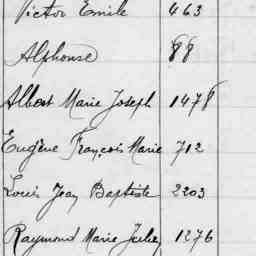 Victor Emile 463
Alphonse 88
Albert Marie Joseph 1478
Eugène François Marie 712
Louis Jean Baptiste 2203
Raymond Marie Julien 1276